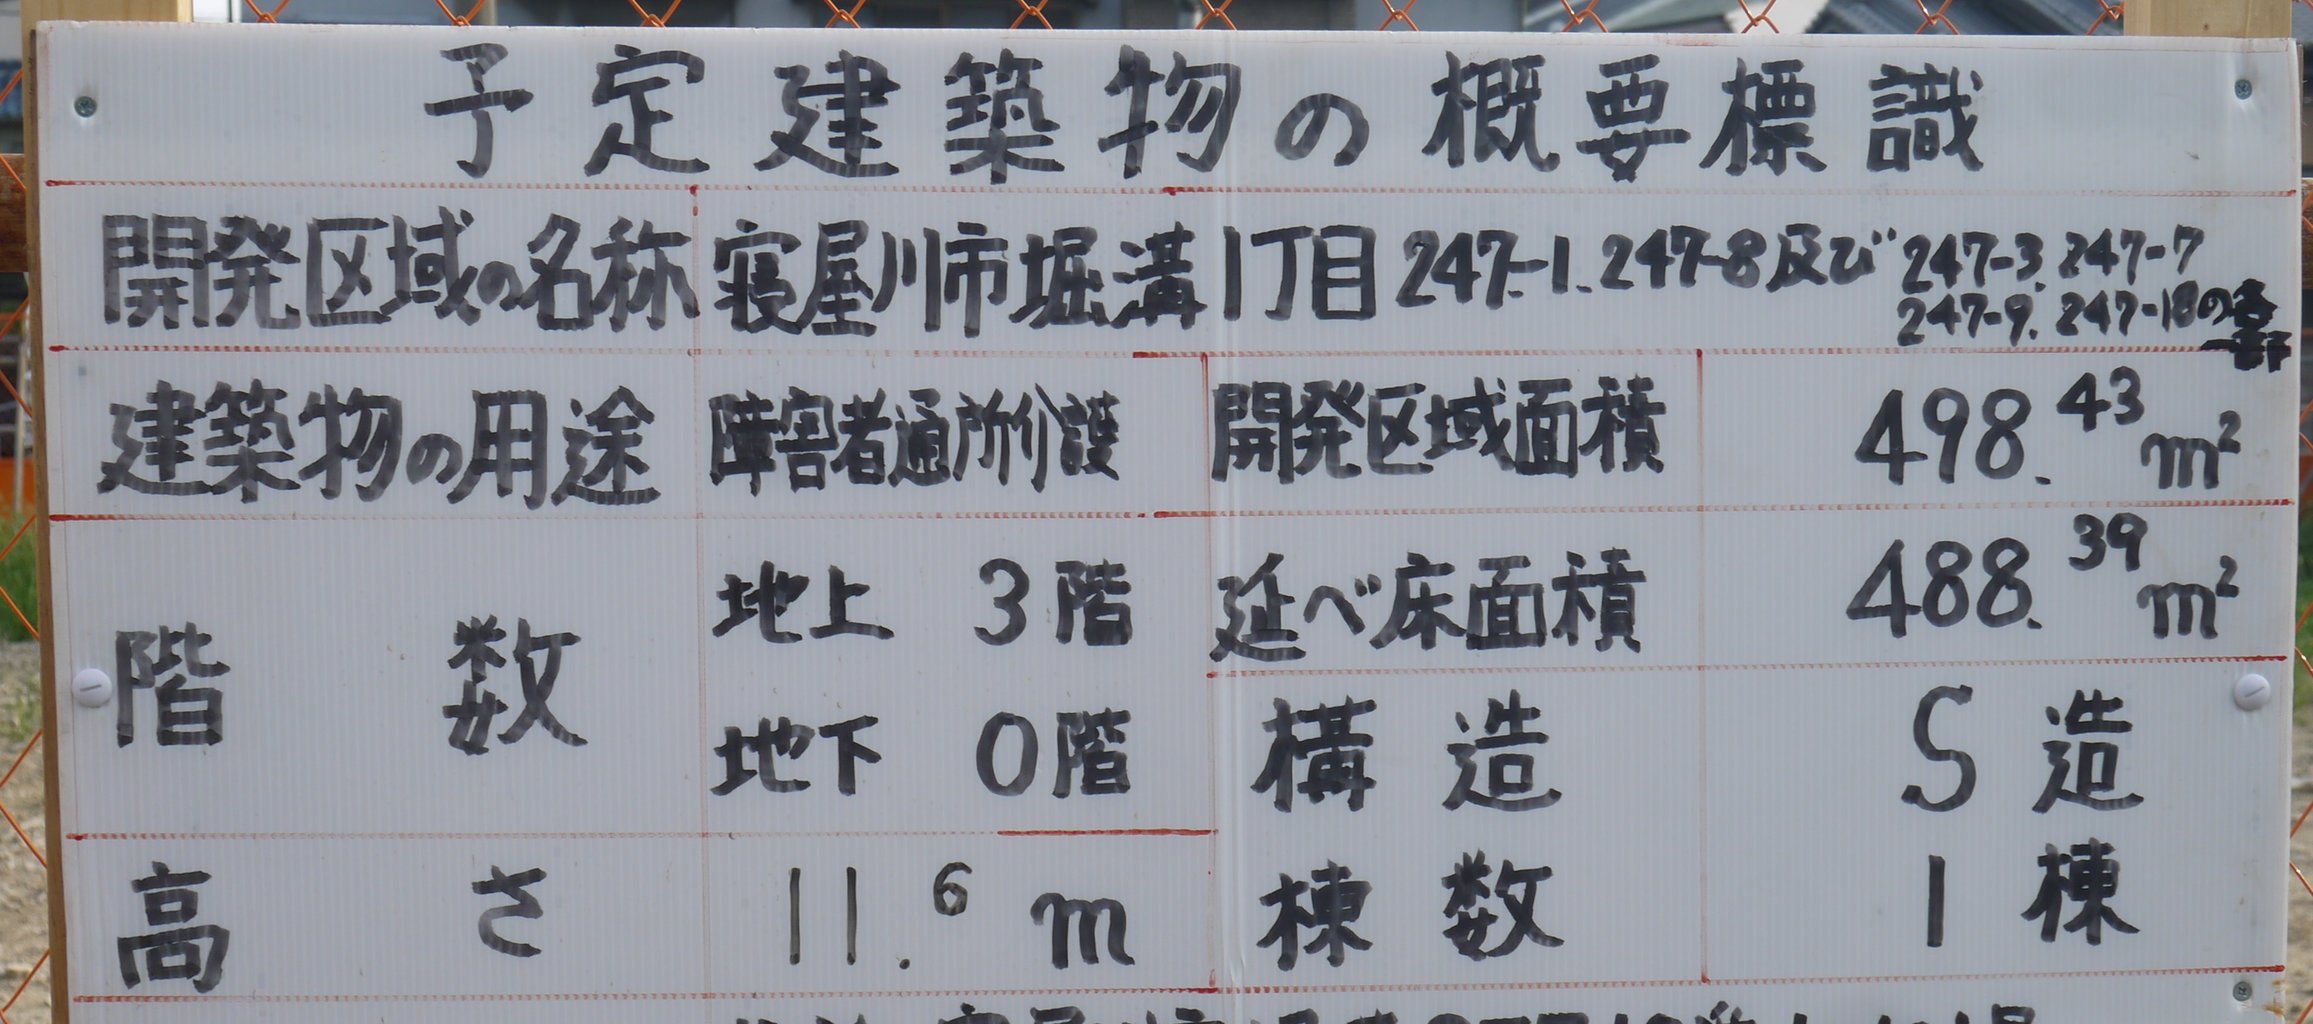 予定建築物の概要標識
開発区域の名称 寝屋川市堀溝1丁目247-1.247-8及び247-3.247-7
247-9.247-18の各一部
建築物の用途 障害者通所介護 開発区域面積 498.43m²
階数 地上 3階 延べ床面積 488.39m²
地下 0階 構造 S造
高さ 11.6m 棟数 1棟